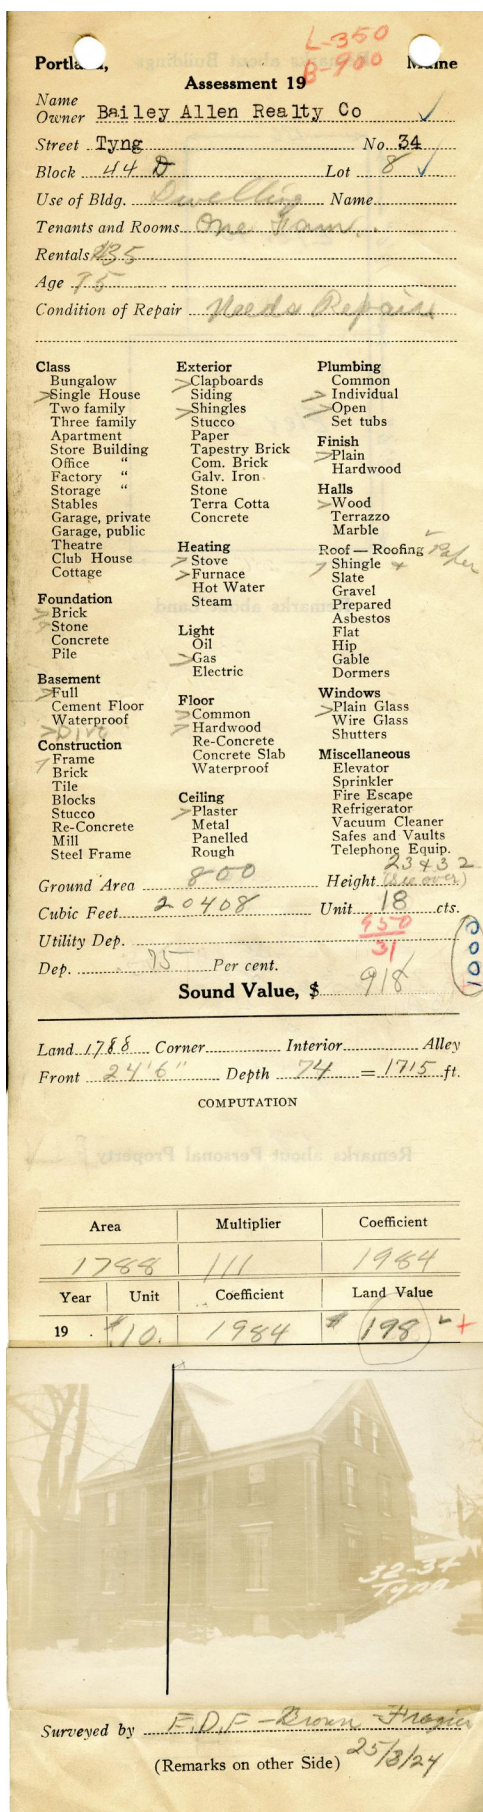 L-350
B-900
Portland, Maine
Assessment 19
Name
Owner Bailey Allen Realty Co ✓
Street Tyng No. 34
Block 44 D Lot 8 ✓
Use of Bldg. Dwelling Name
Tenants and Rooms One Fam.
Rentals $35
Age 75
Condition of Repair Needs Repair
Class
Bungalow
> Single House
Two family
Three family
Apartment
Store Building
Office "
Factory "
Storage "
Stables
Garage, private
Garage, public
Theatre
Club House
Cottage
Foundation
> Brick
> Stone
Concrete
Pile
Basement
> Full
Cement Floor
Waterproof
> Dirt
Construction
> Frame
Brick
Tile
Blocks
Stucco
Re-Concrete
Mill
Steel Frame
Exterior
> Clapboards
Siding
> Shingles
Stucco
Paper
Tapestry Brick
Com. Brick
Galv. Iron
Stone
Terra Cotta
Concrete
Heating
> Stove
> Furnace
Hot Water
Steam
Light
Oil
> Gas
Electric
Floor
> Common
> Hardwood
Re-Concrete
Concrete Slab
Waterproof
Ceiling
> Plaster
Metal
Panelled
Rough
Plumbing
Common
> Individual
> Open
Set tubs
Finish
> Plain
Hardwood
Halls
> Wood
Terrazzo
Marble
Roof — Roofing Paper
> Shingle +
Slate
Gravel
Prepared
Asbestos
Flat
Hip
Gable
Dormers
Windows
> Plain Glass
Wire Glass
Shutters
Miscellaneous
Elevator
Sprinkler
Fire Escape
Refrigerator
Vacuum Cleaner
Safes and Vaults
Telephone Equip.
Ground Area 800 Height 23 + 32 (See over)
Cubic Feet 20408 Unit 18 cts.
Utility Dep. 950
31
Dep. 75 Per cent. 1000
Sound Value, $ 918
Land 1788 Corner Interior Alley
Front 24'6" Depth 74 = 1715 ft.
COMPUTATION
Remarks about Personal Property
Area Multiplier Coefficient
1788 111 1984
Year Unit Coefficient Land Value
19 $.10. 1984 $ 198 ✓ +
32-34
Tyng
Surveyed by F.D.F - Brown - Frazier
(Remarks on other Side) 25/3/24